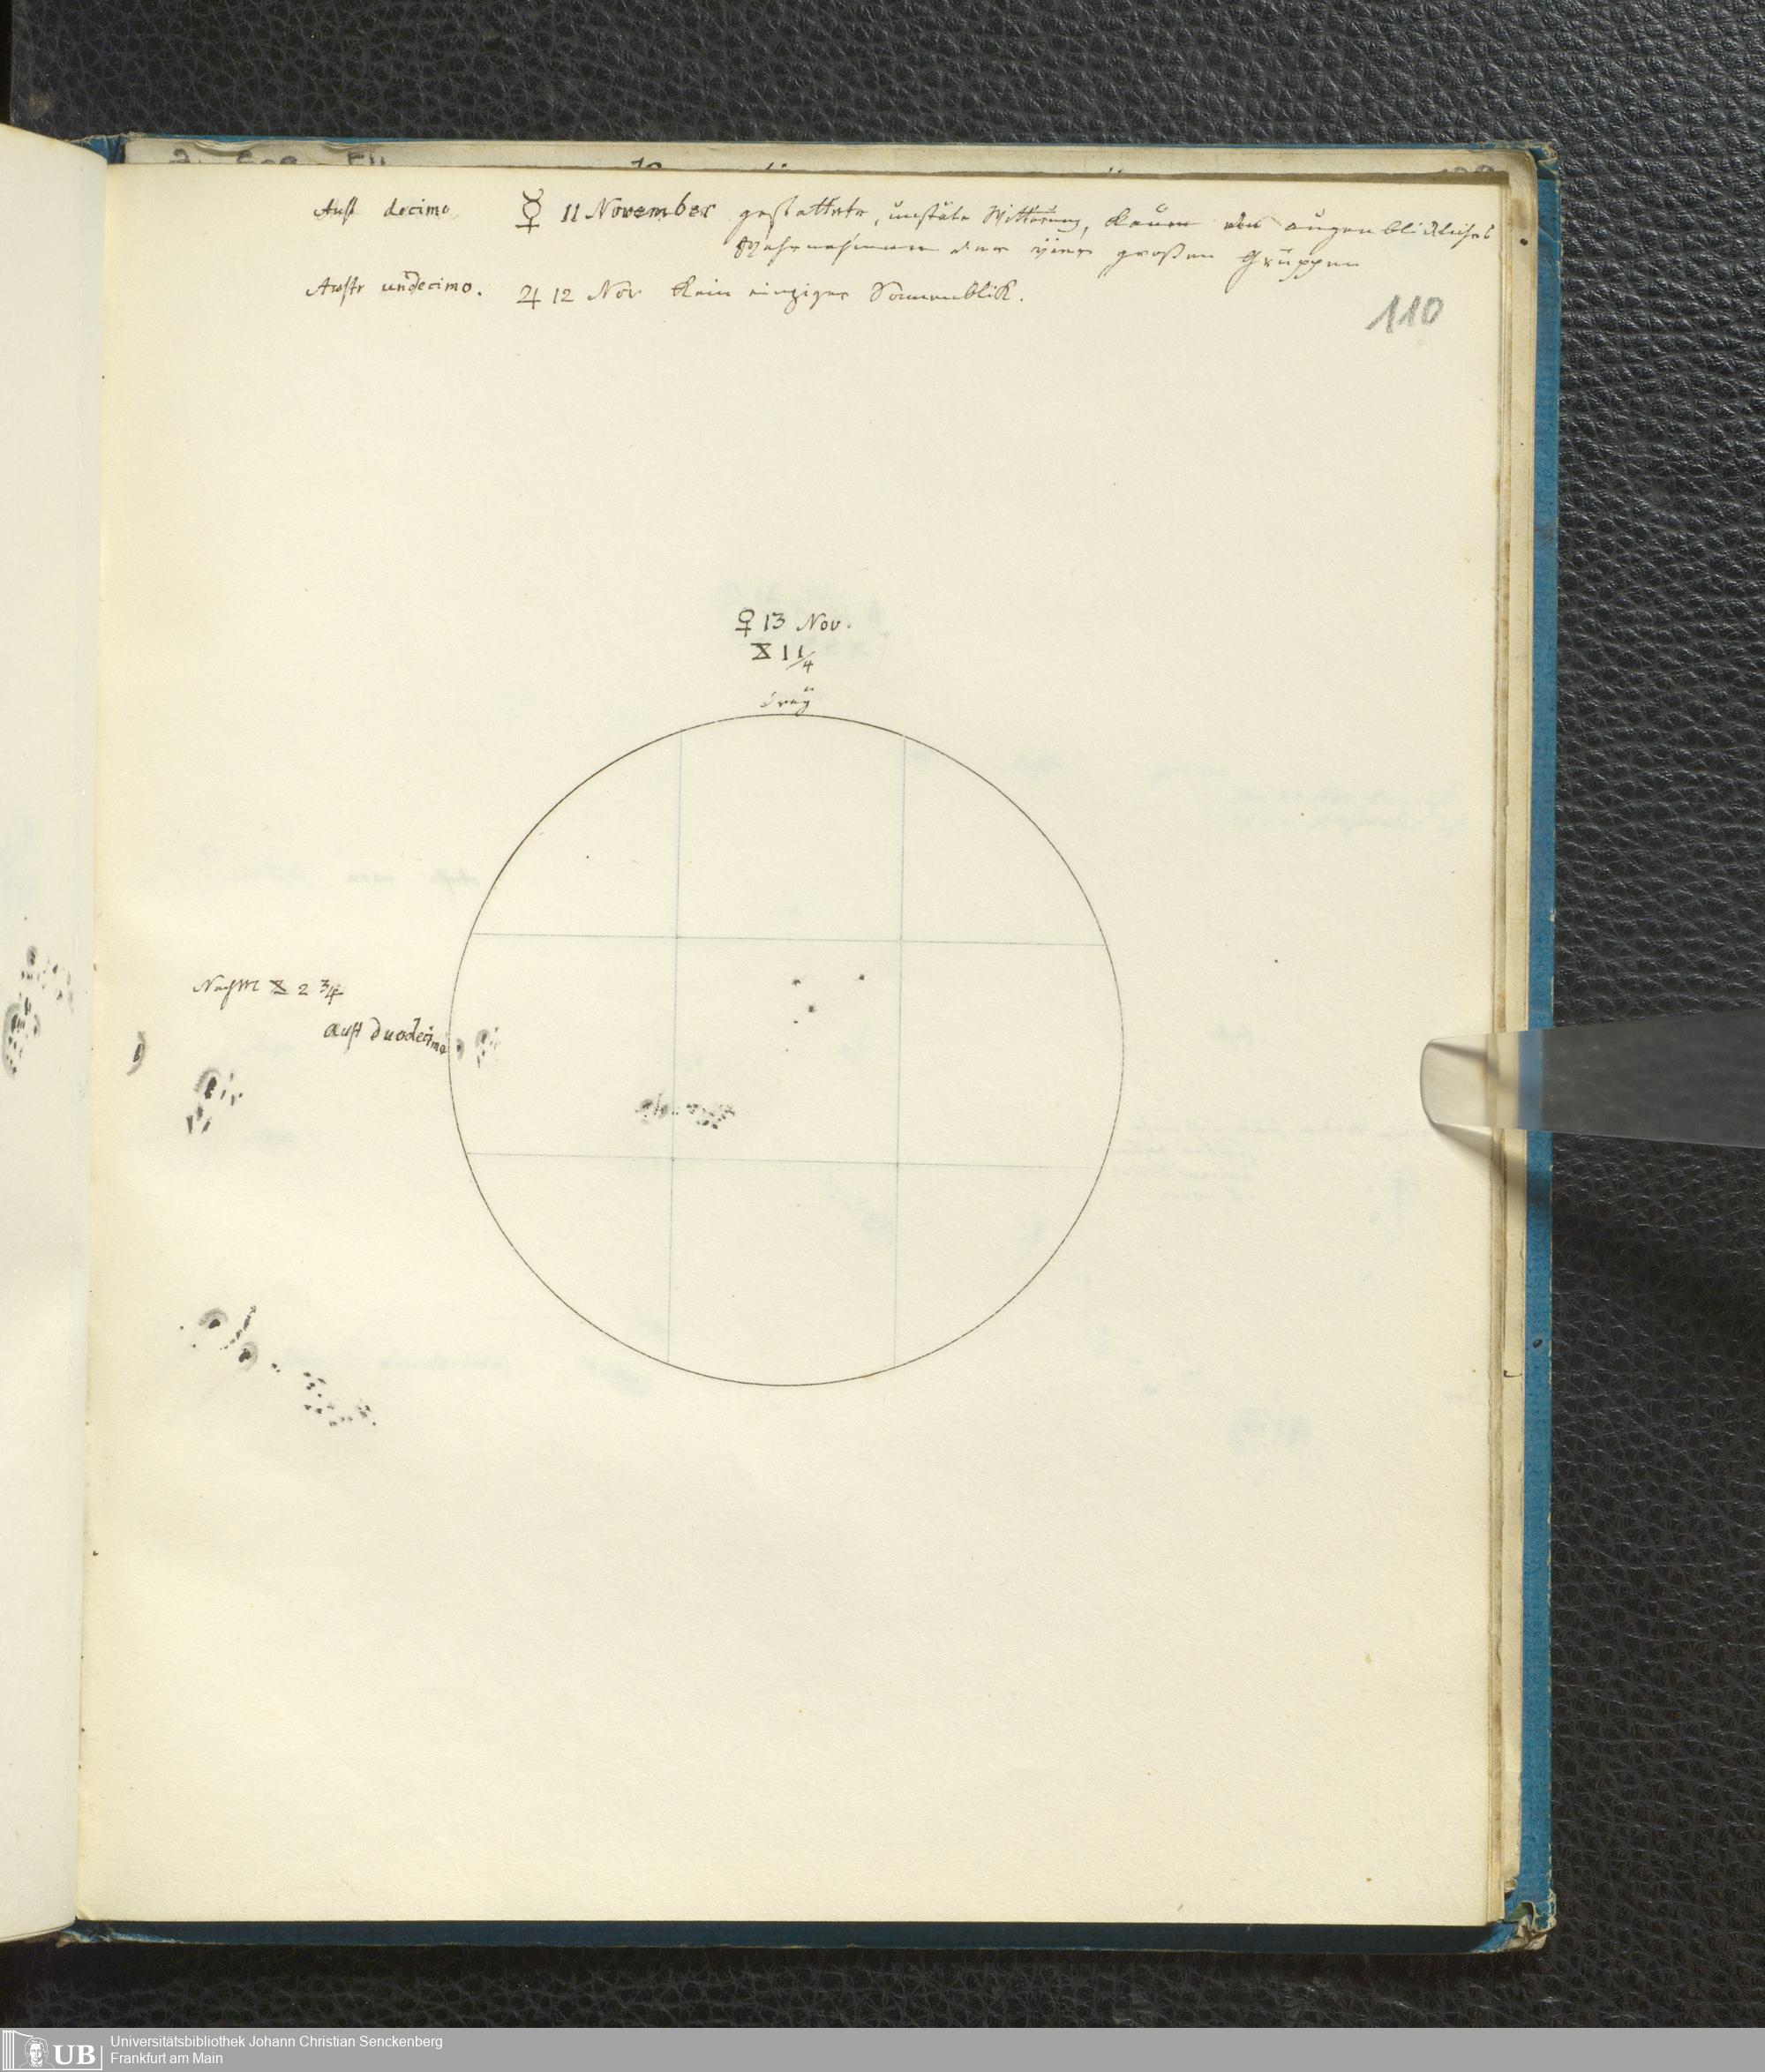 Aust decimo ☿ 11 November gestattete, unstäte Witterung, kaum ein augenblickliches
Wahrnehmen der vier großen Gruppen
Austr undecimo. ♃ 12 Nov kein einziger Sonnenblick.
110
♀ 13 Nov.
X 1 1/4
drey
NachM X 2 3/4
Aust duodecimo
UB Universitätsbibliothek Johann Christian Senckenberg
Frankfurt am Main